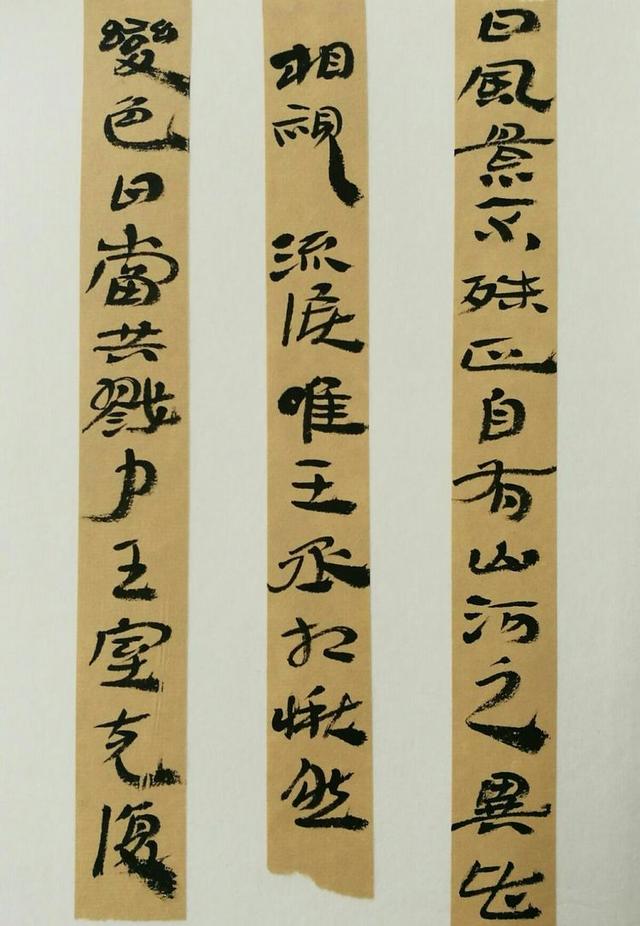 曰風景不殊正自有山河之異皆
相視流淚唯王丞相愀然
變色曰當共戮力王室克復